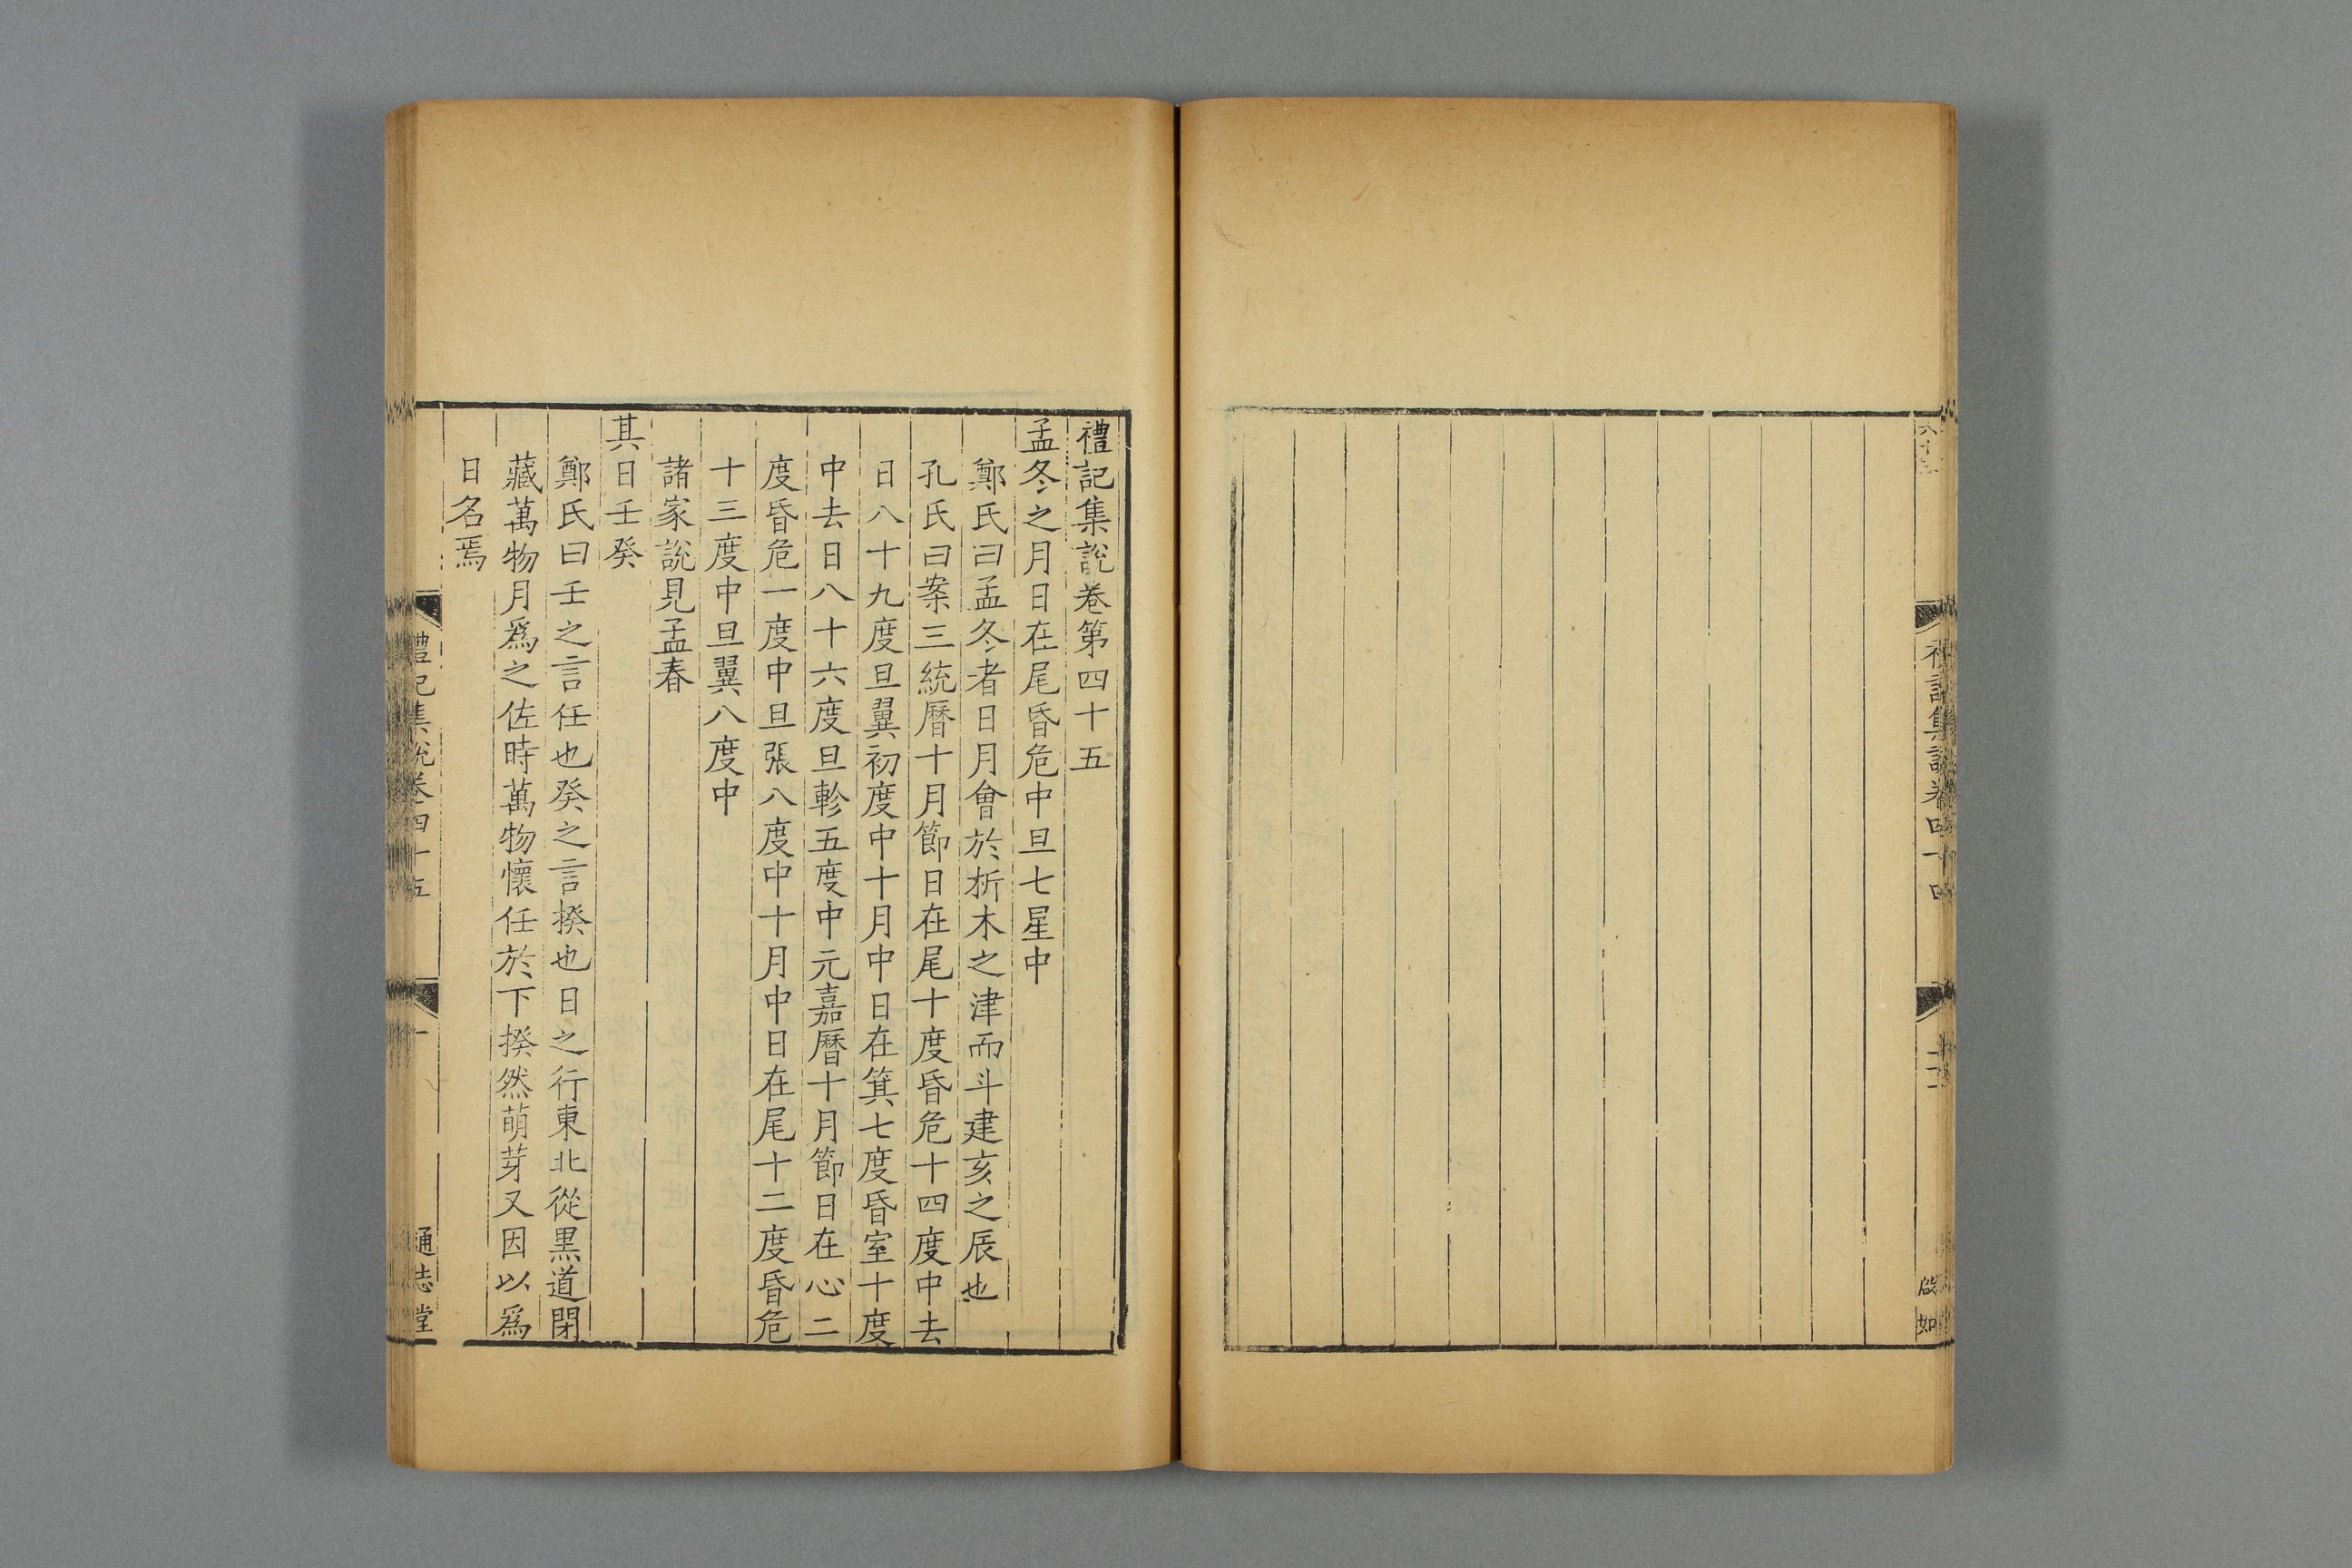 禮記集說卷四十四
啟
如
禮記集說卷第四十五
孟冬之月日在尾昏危中旦七星中
鄭氏曰孟冬者日月會於析木之津而斗建亥之辰也
孔氏曰案三統曆十月節日在尾十度昏危十四度中去
日八十九度旦翼初度中十月中日在箕七度昏室十度
中去日八十六度旦軫五度中元嘉曆十月節日在心二
度昏危一度中旦張八度中十月中日在尾十二度昏危
十三度中旦翼八度中
諸家說見孟春
其日壬癸
鄭氏曰壬之言任也癸之言揆也日之行東北從黑道閉
藏萬物月爲之佐時萬物懷任於下揆然萌芽又因以爲
日名焉
禮記集說卷四十五
一
通志堂